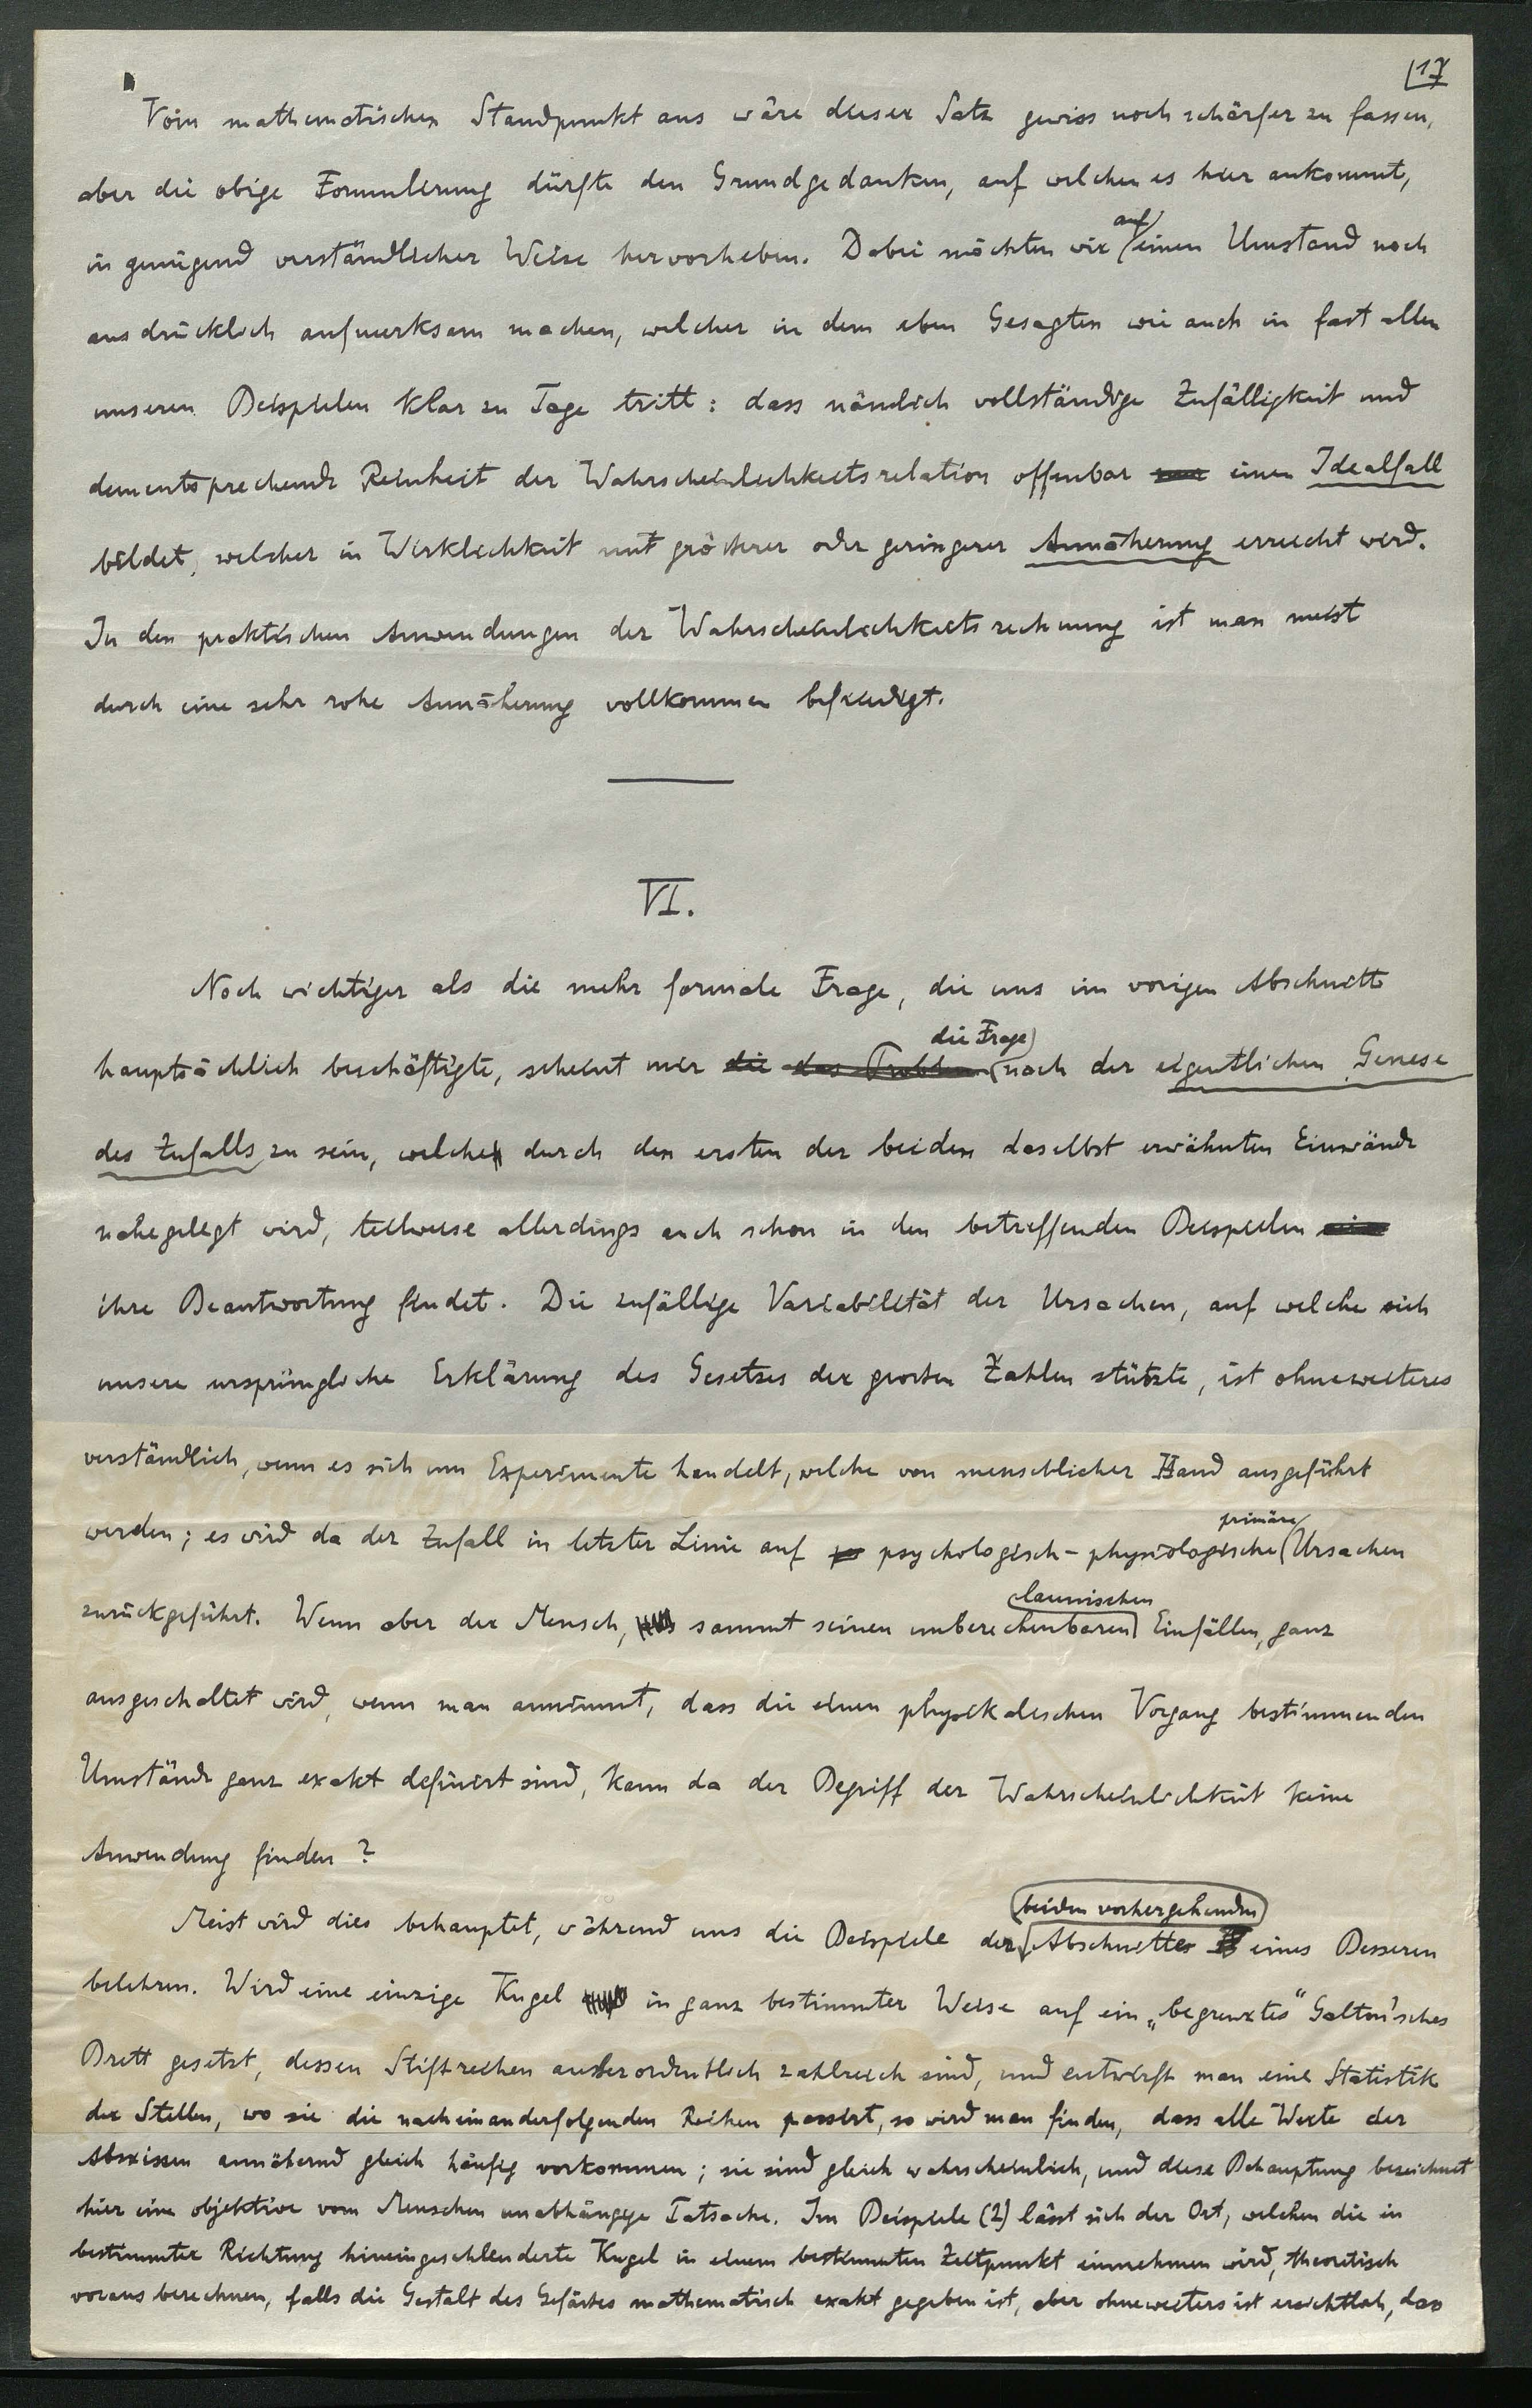 17
Vom mathematischen Standpunkt aus wäre dieser Satz gewiss noch schärfer zu fassen,
aber die obige Formulierung dürfte den Grundgedanken, auf welchen es hier ankommt,
in genügend verständlicher Weise hervorheben. Dabei möchten wir auf einen Umstand noch
ausdrücklich aufmerksam machen, welcher in dem eben Gesagten wie auch in fast allen
unseren Beispielen klar zu Tage tritt: dass nämlich vollständige Zufälligkeit und
dementsprechende Reinheit der Wahrscheinlichkeitsrelation offenbar einen Idealfall
bildet, welcher in Wirklichkeit mit grösserer oder geringerer Annäherung erreicht wird.
In den praktischen Anwendungen der Wahrscheinlichkeitsrechnung ist man meist
durch eine sehr rohe Annäherung vollkommen befriedigt.
VI.
Noch wichtiger als die mehr formale Frage, die uns im vorigen Abschnitte
hauptsächlich beschäftigte, scheint mir die das Problem die Frage nach der eigentlichen Genese
des Zufalls zu sein, welche durch den ersten der beiden daselbst erwähnten Einwände
nahegelegt wird, teilweise allerdings auch schon in den betreffenden Beispielen
ihre Beantwortung findet. Die zufällige Variabilität der Ursachen, auf welche sich
unsere ursprüngliche Erklärung des Gesetzes der grossen Zahlen stützte, ist ohneweiteres
verständlich, wenn es sich um Experimente handelt, welche von menschlicher Hand ausgeführt
werden; es wird da der Zufall in letzter Linie auf psychologisch-physiologische primäre Ursachen
zurückgeführt. Wenn aber der Mensch, sammt seinen unberechenbaren launischen Einfällen, ganz
ausgeschaltet wird, wenn man annimmt, dass die einen physikalischen Vorgang bestimmenden
Umstände ganz exakt definiert sind, kann da der Begriff der Wahrscheinlichkeit keine
Anwendung finden?
Meist wird dies behauptet, während uns die Beispiele der beiden vorhergehenden Abschnitte eines Besseren
belehren. Wird eine einzige Kugel in ganz bestimmter Weise auf ein „begrenztes“ Galton'sches
Brett gesetzt, dessen Stiftreihen ausserordentlich zahlreich sind, und entwirft man eine Statistik
der Stellen, wo sie die nacheinanderfolgenden Reihen passirt, so wird man finden, dass alle Werte der
Abszissen annähernd gleich häufig vorkommen; sie sind gleich wahrscheinlich, und diese Behauptung bezeichnet
hier eine objektive vom Menschen unabhängige Tatsache. Im Beispiele (2) lässt sich der Ort, welchen die in
bestimmter Richtung hineingeschleuderte Kugel in einem bestimmten Zeitpunkt einnehmen wird, theoretisch
voraus berechnen, falls die Gestalt des Gefässes mathematisch exakt gegeben ist, aber ohneweiters ist ersichtlich, dass